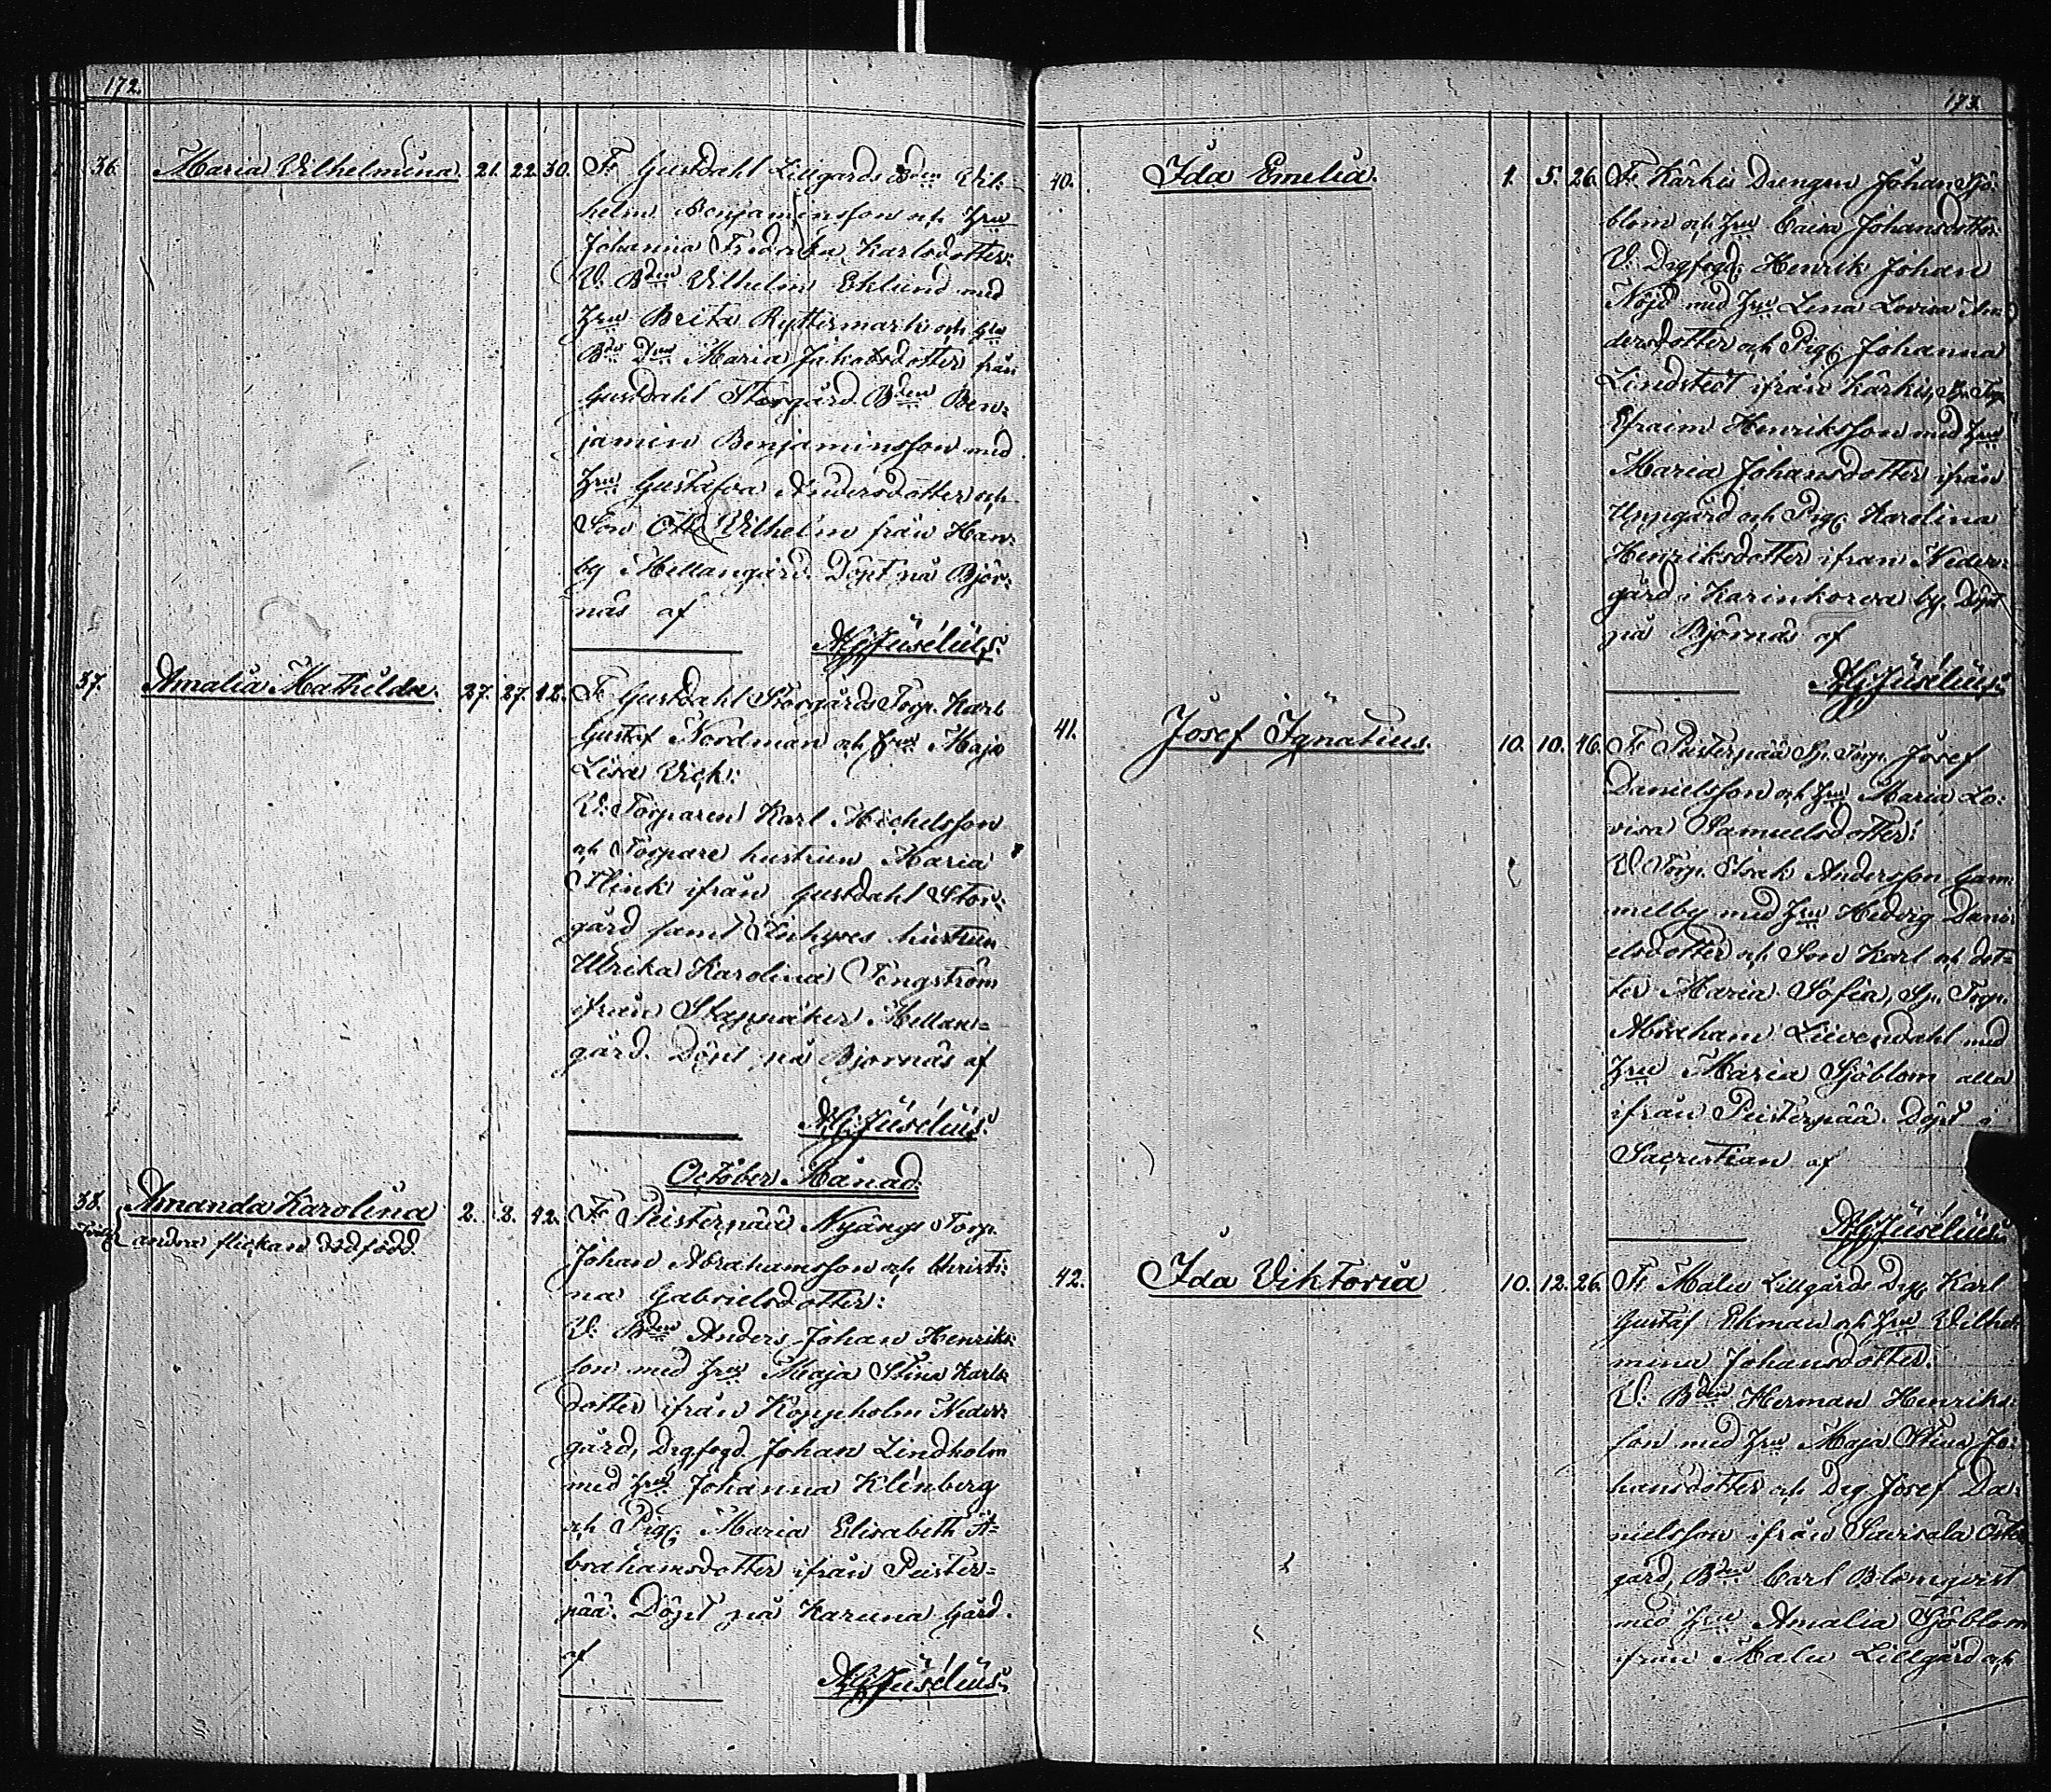 172.
36. Maria Vilhelmina. 21. 22. 30. Fr Gustdahl Lillgårds Bden Vil:
helm Benjaminsson och Hru
Johanna Fredrika Karlsdotter:
V. Bden Vilhelm Eklund med
Hru Brita Ryttermark och
Maria Jakobsdotter från
Gustdahl Storgård Bden Ben:
jamin Benjaminsson med
Hru Gustafva Andersdotter och
Son Otto Vilhelm från Han:
by Mellangård. Döpt på Björ:
näs af
Juselius.
37. Amalia Mathilda. 27. 27. 42. Fr Gustdahl Storgårds Torp. Karl
Gustaf Nordman och Hru Maja
Lisa Vick:
V: Torparen Karl Michelsson
och Torpare hustrun Maria
Flink ifrån Gustdahl Stor:
gård samt Inhyses hustrun
Ulrika Karolina Tengström
ifrån Stapnäker Mellan=
gård. Döpt på Björnäs af
Juselius.
October Månad.
38. Amanda Karolina 2. 8. 42. Fr Peisterpää Nyängs Torp.
andra flickan dödfödd.
Johan Abrahamsson och Christi:
na Gabrielsdotter:
V. Bden Anders Johan Henriks:
son med Hru Maja Stina Karls:
dotter ifrån Koppholm Neder:
gård, Drgfogd. Johan Lindholm
med Hru Johanna Klinberg
och Pig. Maria Elisabeth A=
brahamsdotter ifrån Peister=
pää. Döpt på Karuna Gård.
af
Juselius.
173.
40. Ida Emelia. 1. 5. 26. Fr Kärkis Drengen Johan Sjö:
blom och Hru Caisa Johansdotter
V. Drgfogd: Henrik Johan
Nöjd med Hru Lena Lovisa An:
dersdotter och Pig. Johanna
Lindstedt ifrån Kärkis, Sp. Torp.
Efraim Henriksson med Hru
Maria Johansdotter ifrån
Uppgård och Pig. Karolina
Henriksdotter ifrån Neder:
gård i Karinkorva by. Döpt
på Björnäs af
Juselius.
41. Josef Ignatius. 10. 10. 46. Fr Peisterpää Sp. Torp. Josef
Danielsson och Hru Maria Lo:
visa Samuelsdotter:
V. Torp. Isak Andersson Gam:
melby med Hru Hedvig Dani:
elsdotter och Son Karl och dot=
ter Maria Sofia, Sp. Torp.
Abraham Liewendahl med
Hru Maria Sjöblom alla
ifrån Peisterpää. Döpt i
Sacristian af
Juselius.
42. Ida Viktoria 10. 12. 26. Fr Malu Lillgårds Drg. Karl
Gustaf Ekman och Hru Vilhel
mina Johansdotter:
V. Bden Herman Henriks:
son med Hru Maja Stina Jo:
hansdotter och Drg. Josef Da:
nielsson ifrån Suirsala Öster
gård, Bden Carl Blomqvist
med Hru Amalia Sjöblom
ifrån Malu Lillgård och